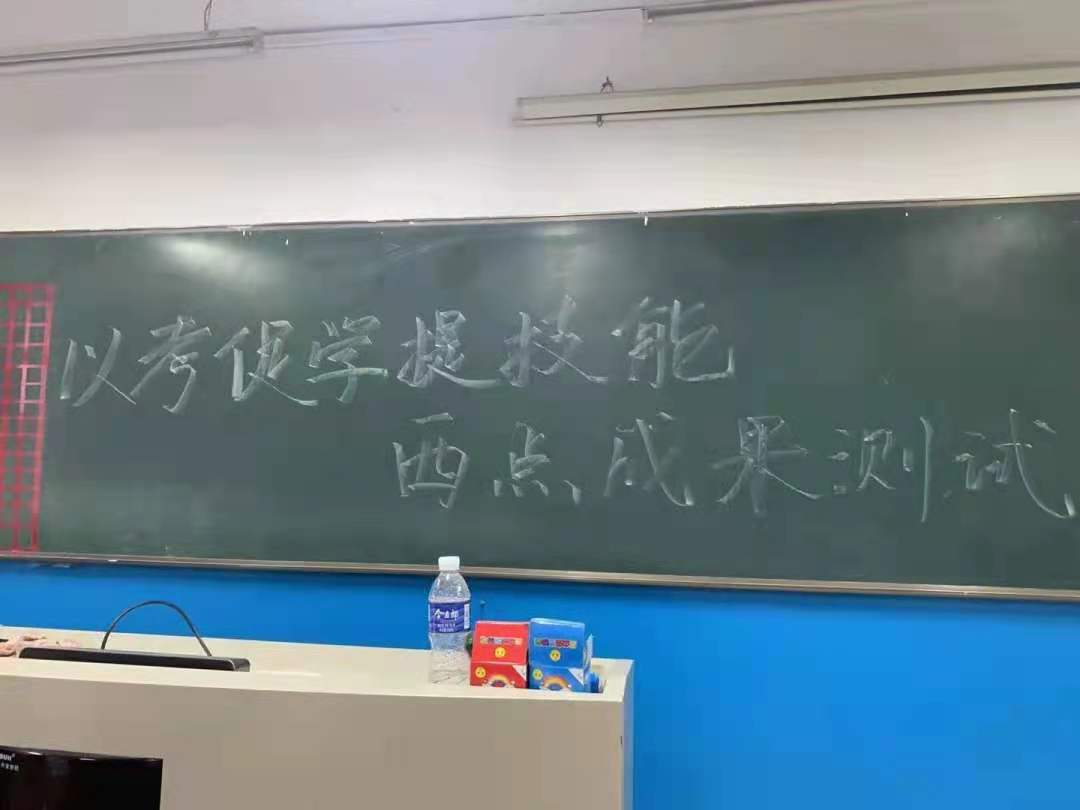 以考促学提技能
西点成果测试